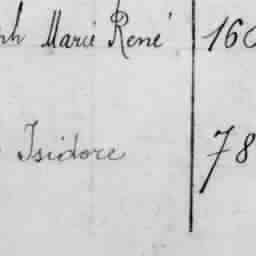 ph Marie René 160
Isidore 78